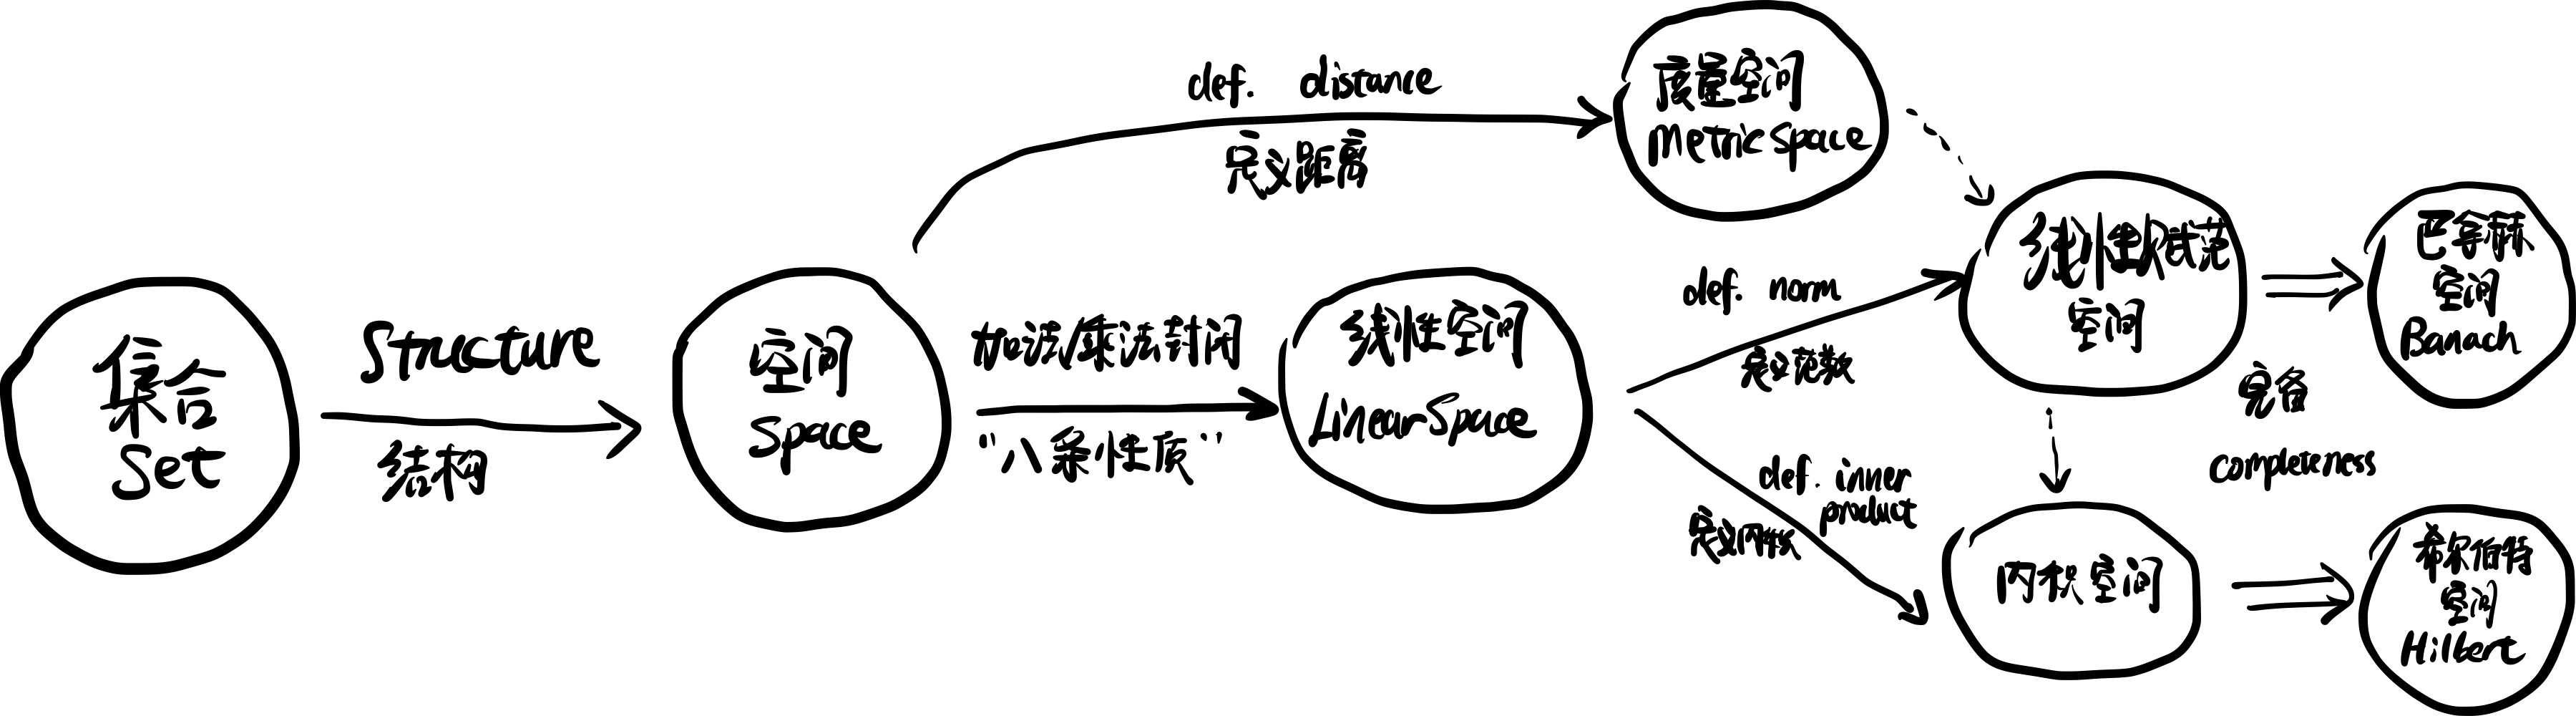 集合
Set
Structure
结构
空间
Space
def. distance
定义距离
度量空间
Metric Space
加法/乘法封闭
“八条性质”
线性空间
Linear Space
def. norm
定义范数
def. inner
product
定义内积
线性赋范
空间
内积空间
完备
completeness
巴拿赫
空间
Banach
希尔伯特
空间
Hilbert